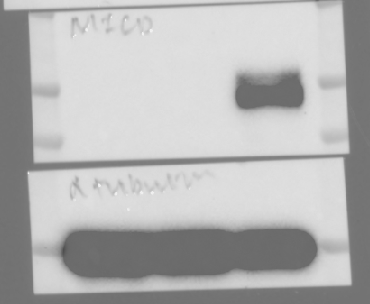 NICD
α tubulin